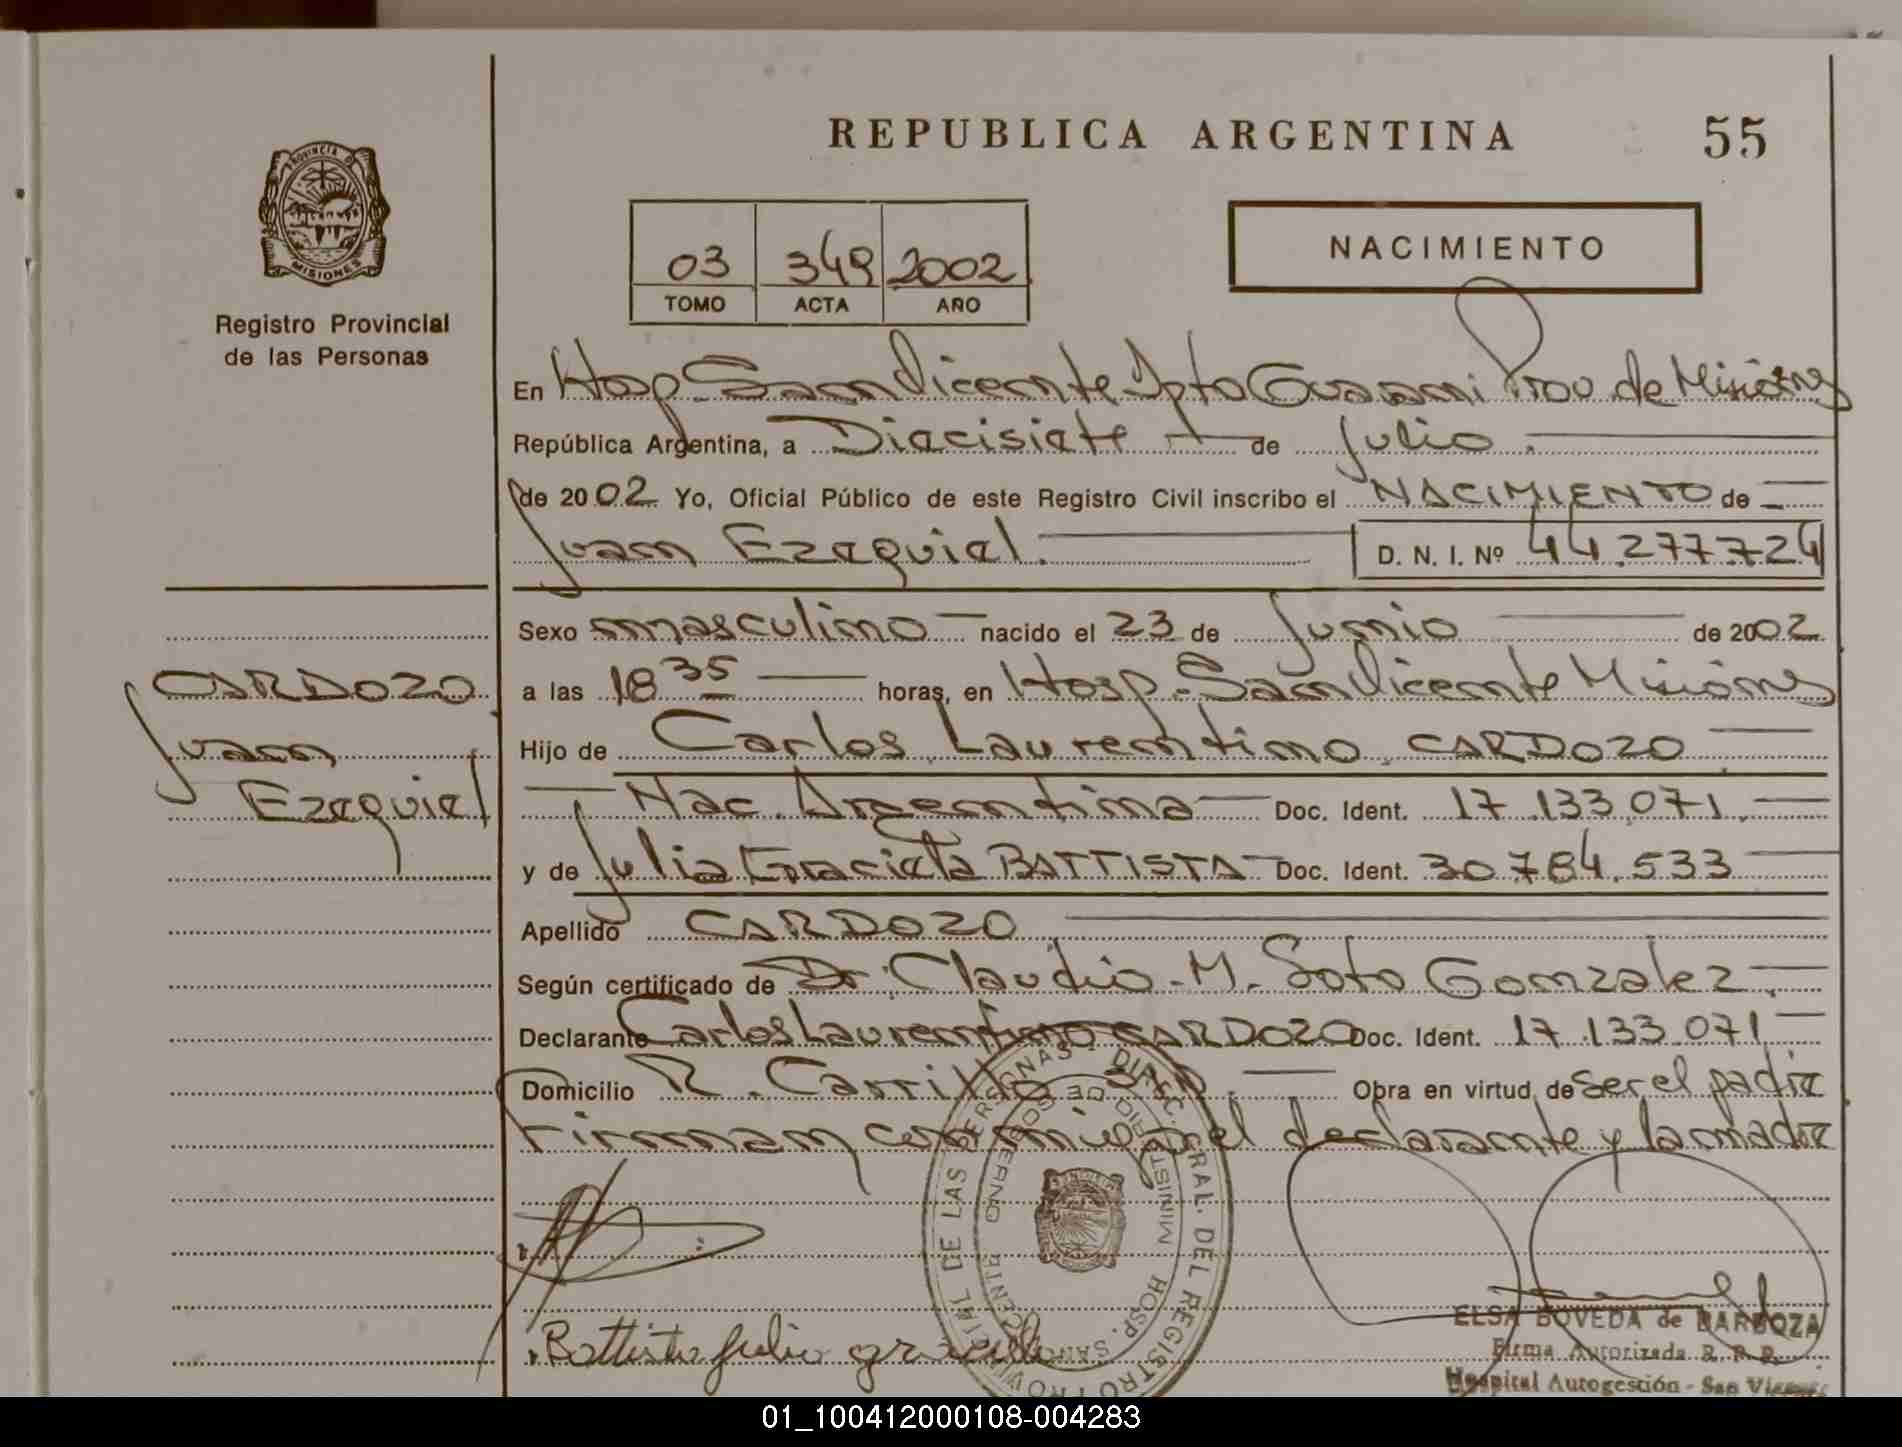 REPUBLICA ARGENTINA
55
PROVINCIA DE
MISIONES
Registro Provincial
de las Personas
03 349 2002
TOMO ACTA AÑO
NACIMIENTO
En Hosp. San Vicente Dpto Guarani Prov de Misiones
República Argentina, a Diecisiete de Julio.
de 2002 Yo, Oficial Público de este Registro Civil inscribo el NACIMIENTO de
Juan Ezequiel. D. N. I. Nº 44.277.724
Sexo masculino nacido el 23 de Junio de 2002
a las 18 35 horas, en Hosp. San Vicente Misiones
CARDOZO
Juan
Ezequiel
Hijo de Carlos Laurentino CARDOZO
Nac. Argentina Doc. Ident. 17.133.071.
y de Julia Graciela BATTISTA Doc. Ident. 30.784.533
Apellido CARDOZO
Según certificado de Dr. Claudio M. Soto Gonzalez.
Declarante Carlos Laurentino CARDOZO Doc. Ident. 17.133.071
Domicilio R. Carrillo S/N. Obra en virtud de ser el padre
Firman conmigo el declarante y la madre
DE LAS PERSONAS - DIRECC. GRAL. DEL REGISTRO PROVINCIAL
MINISTERIO DE GOBIERNO
HOSP. SAN VICENTE
Battista Julia graciela
ELSA BOVEDA de BARBOZA
Firma Autorizada R. P. P.
Hospital Autogestión - San Vicente
01_100412000108-004283